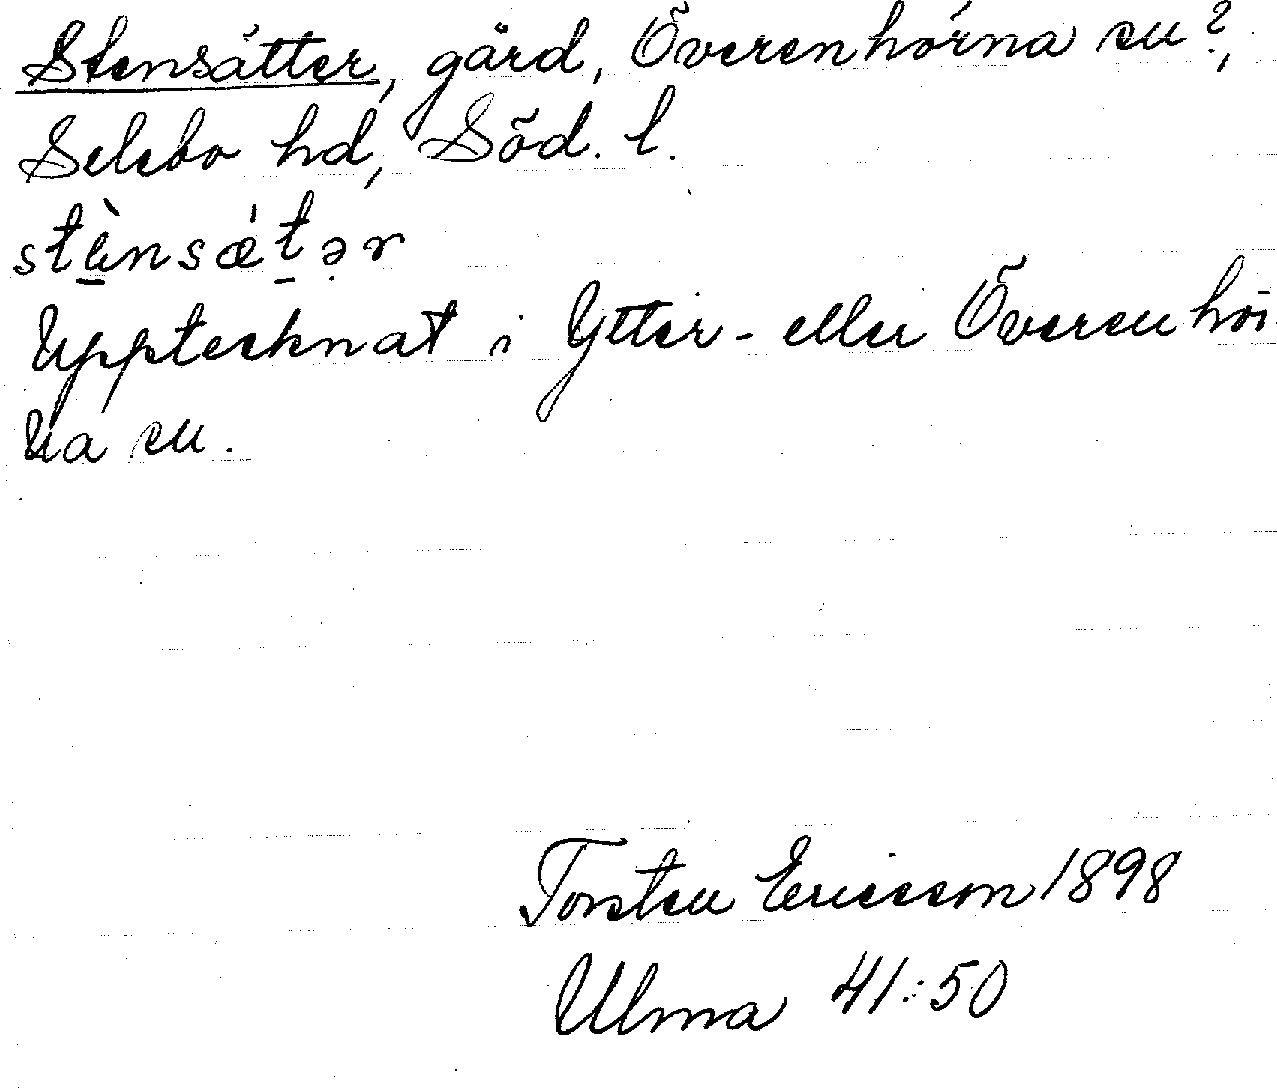 Stensätter, gård, Överenhörna sn?,
Selebo hd, Söd. l.
stènsǽtər
Upptecknat i Ytter- eller Överenhör
na sn.
Torsten Ericsson 1898
Ulma 41:50